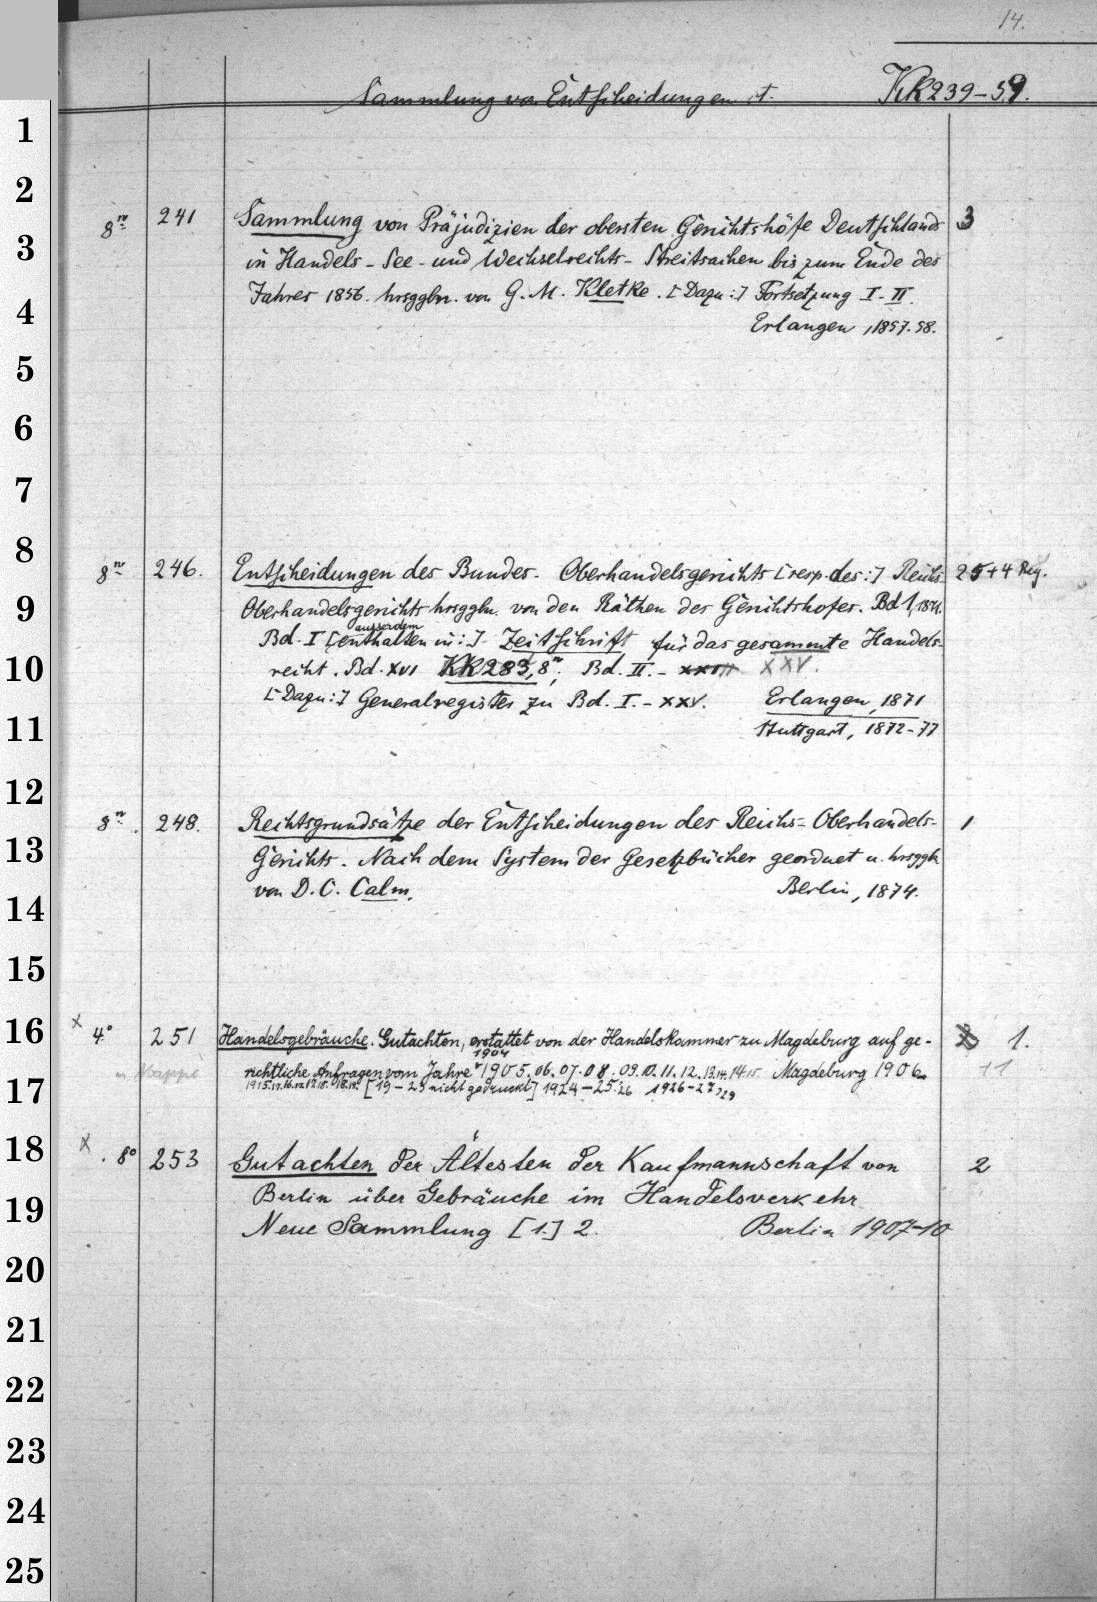 14.
Sammlung von Entscheidungen
KK 239-59.
1
2
8ᵛᵒ 241 Sammlung von Präjudizien der obersten Gerichtshöfe Deutschlands 3
3
in Handels- See- und Wechselrechts- Streitsachen bis zum Ende des
Jahres 1856. hrsggbn. von G. M. Kletke. [Dazu:] Fortsetzung I-II.
4
Erlangen, 1857.58.
5
6
7
8
8ᵛᵒ 246. Entscheidungen des Bundes- Oberhandelsgerichts [resp. des:] Reichs- 25+4 Reg.
9
Oberhandelsgerichts hrsggbn. von den Räthen des Gerichtshofes. Bd 1, 1871.
Bd. I [ausserdem enthalten in:] Zeitschrift für das gesammte Handels-
10
recht. Bd. XVI KK 283, 8ᵛᵒ; Bd. II. - XXV.
[Dazu:] Generalregister zu Bd. I. - XXV. Erlangen, 1871
11
Stuttgart, 1872-77
12
8ᵛᵒ. 248. Rechtsgrundsätze der Entscheidungen des Reichs- Oberhandels- 1
13
Gerichts. Nach dem System der Gesetzbücher geordnet u. hrsggbn
von D. C. Calm. Berlin, 1874.
14
15
16
x 4° 251 Handelsgebräuche. Gutachten, erstattet von der Handelskammer zu Magdeburg auf ge- 1.
1904
u Mappe richtliche Anfragen vom Jahre 1905. 06. 07. 08. 09. 10. 11. 12. 13. 14. Magdeburg 1906 +1
17
[19-23 nicht gedruckt] 1924-25. 26 1926-27, 29
18
x 8° 253 Gutachten der Ältesten der Kaufmannschaft von 2
19
Berlin über Gebräuche im Handelsverkehr
Neue Sammlung [1.] 2. Berlin 1907-10
20
21
22
23
24
25